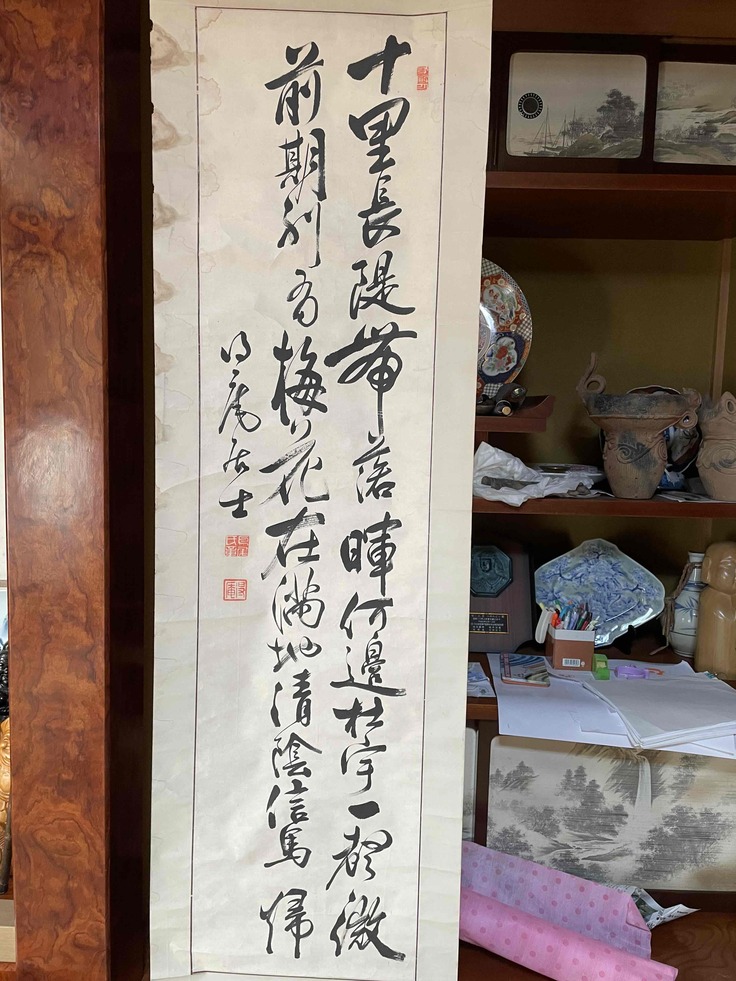 十里長隄帶落暉何邊杜宇一聲微
前期別有梅花在滿地清陰信馬歸
庵居士